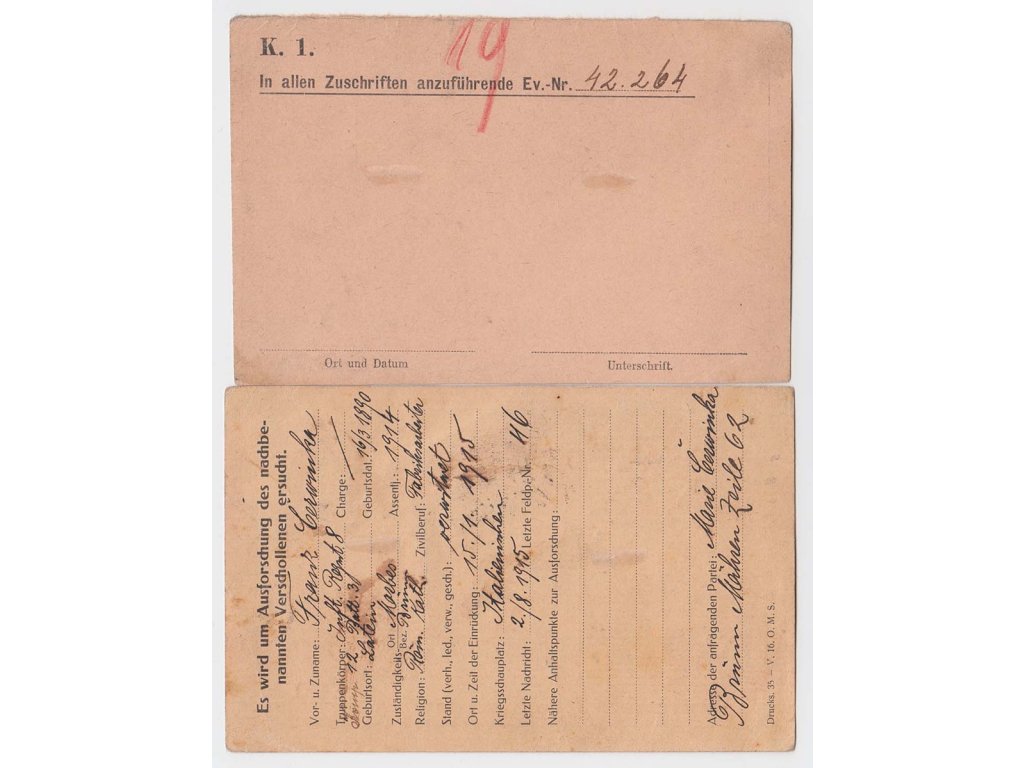 K. 1.
19
In allen Zuschriften anzuführende Ev.-Nr. 42.264
Ort und Datum
Unterschrift.
Es wird um Ausforschung des nachbe-
nannten Verschollenen ersucht.
Vor- u. Zuname: Frank Čerwinka
Truppenkörper: Inft. Regmt. 8 Charge: /
Comp 12 Batt. 3
Geburtsort: Latein Geburtsdat. 16/3 1890
Zuständigkeits- Ort Bez. Brünn Assentj.: 1914
Religion: Röm. Kath. Zivilberuf: Fabriksarbeiter
Stand (verh., led., verw., gesch.):
Ort u. Zeit der Einrückung: 15./1. 1915
Kriegsschauplatz:
Letzte Nachricht: 2./8. 1915 Letzte Feldp.-Nr. 46
Nähere Anhaltspunkte zur Ausforschung:
Adresse der anfragenden Partei: Marie Čerwinka
Brünn Mähren Zeile 62
Drucks. 35 — V. 16. O. M. S.